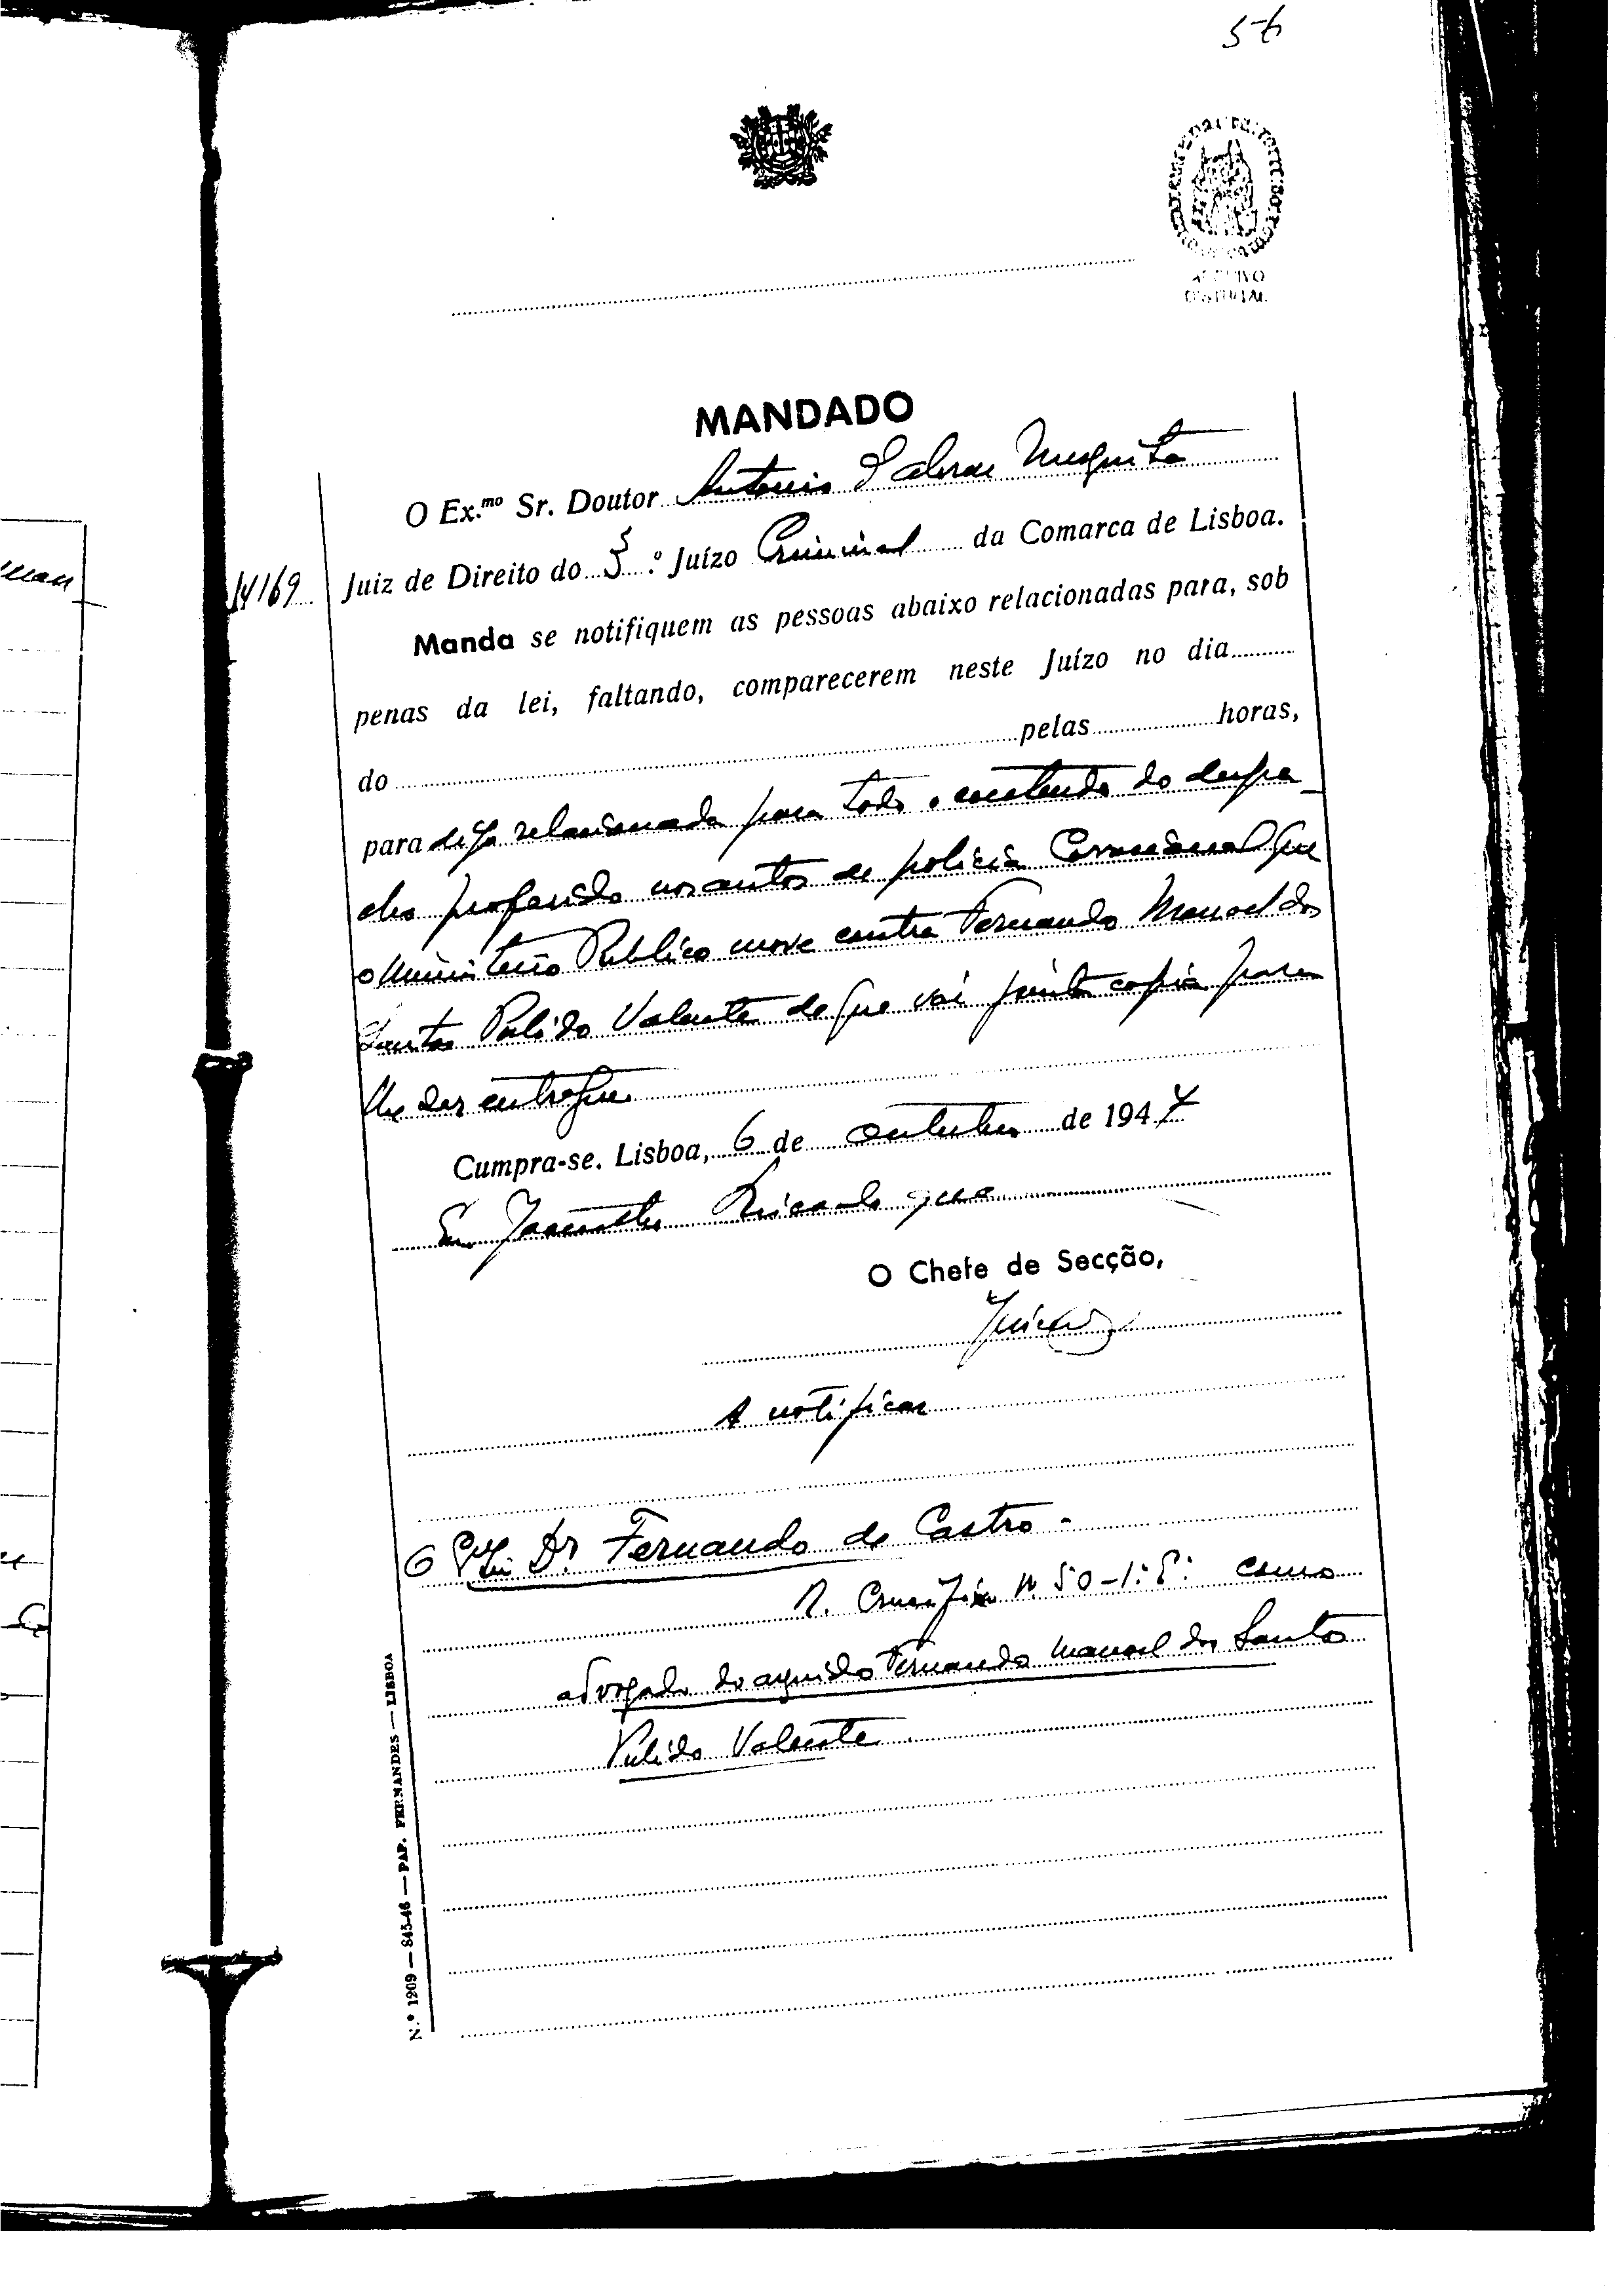 56
ARQUIVO
DISTRITAL
MANDADO
O Ex.mo Sr. Doutor Antonio Mesquita
14169 Juiz de Direito do 5.º Juízo Criminal da Comarca de Lisboa.
Manda se notifiquem as pessoas abaixo relacionadas para, sob
penas da lei, faltando, comparecerem neste Juízo no dia
do pelas horas,
para relacionada para todo o conteudo do despa
cho proferido nos autos de policia Correcional que
o Ministerio Publico move contra Fernando Manoel dos
Santos Pulido Valente de que vai junta copia para
lhe ser entregue
Cumpra-se. Lisboa, 6 de outubro de 1947
Eu que
O Chefe de Secção,
A notificar
O Dr. Fernando de Castro -
R. Crucifixo Nº 50-1º como
advogado do arguido Fernando Manoel dos Santos
Pulido Valente
N.º 1209 — 845-46 — PAP. FERNANDES — LISBOA